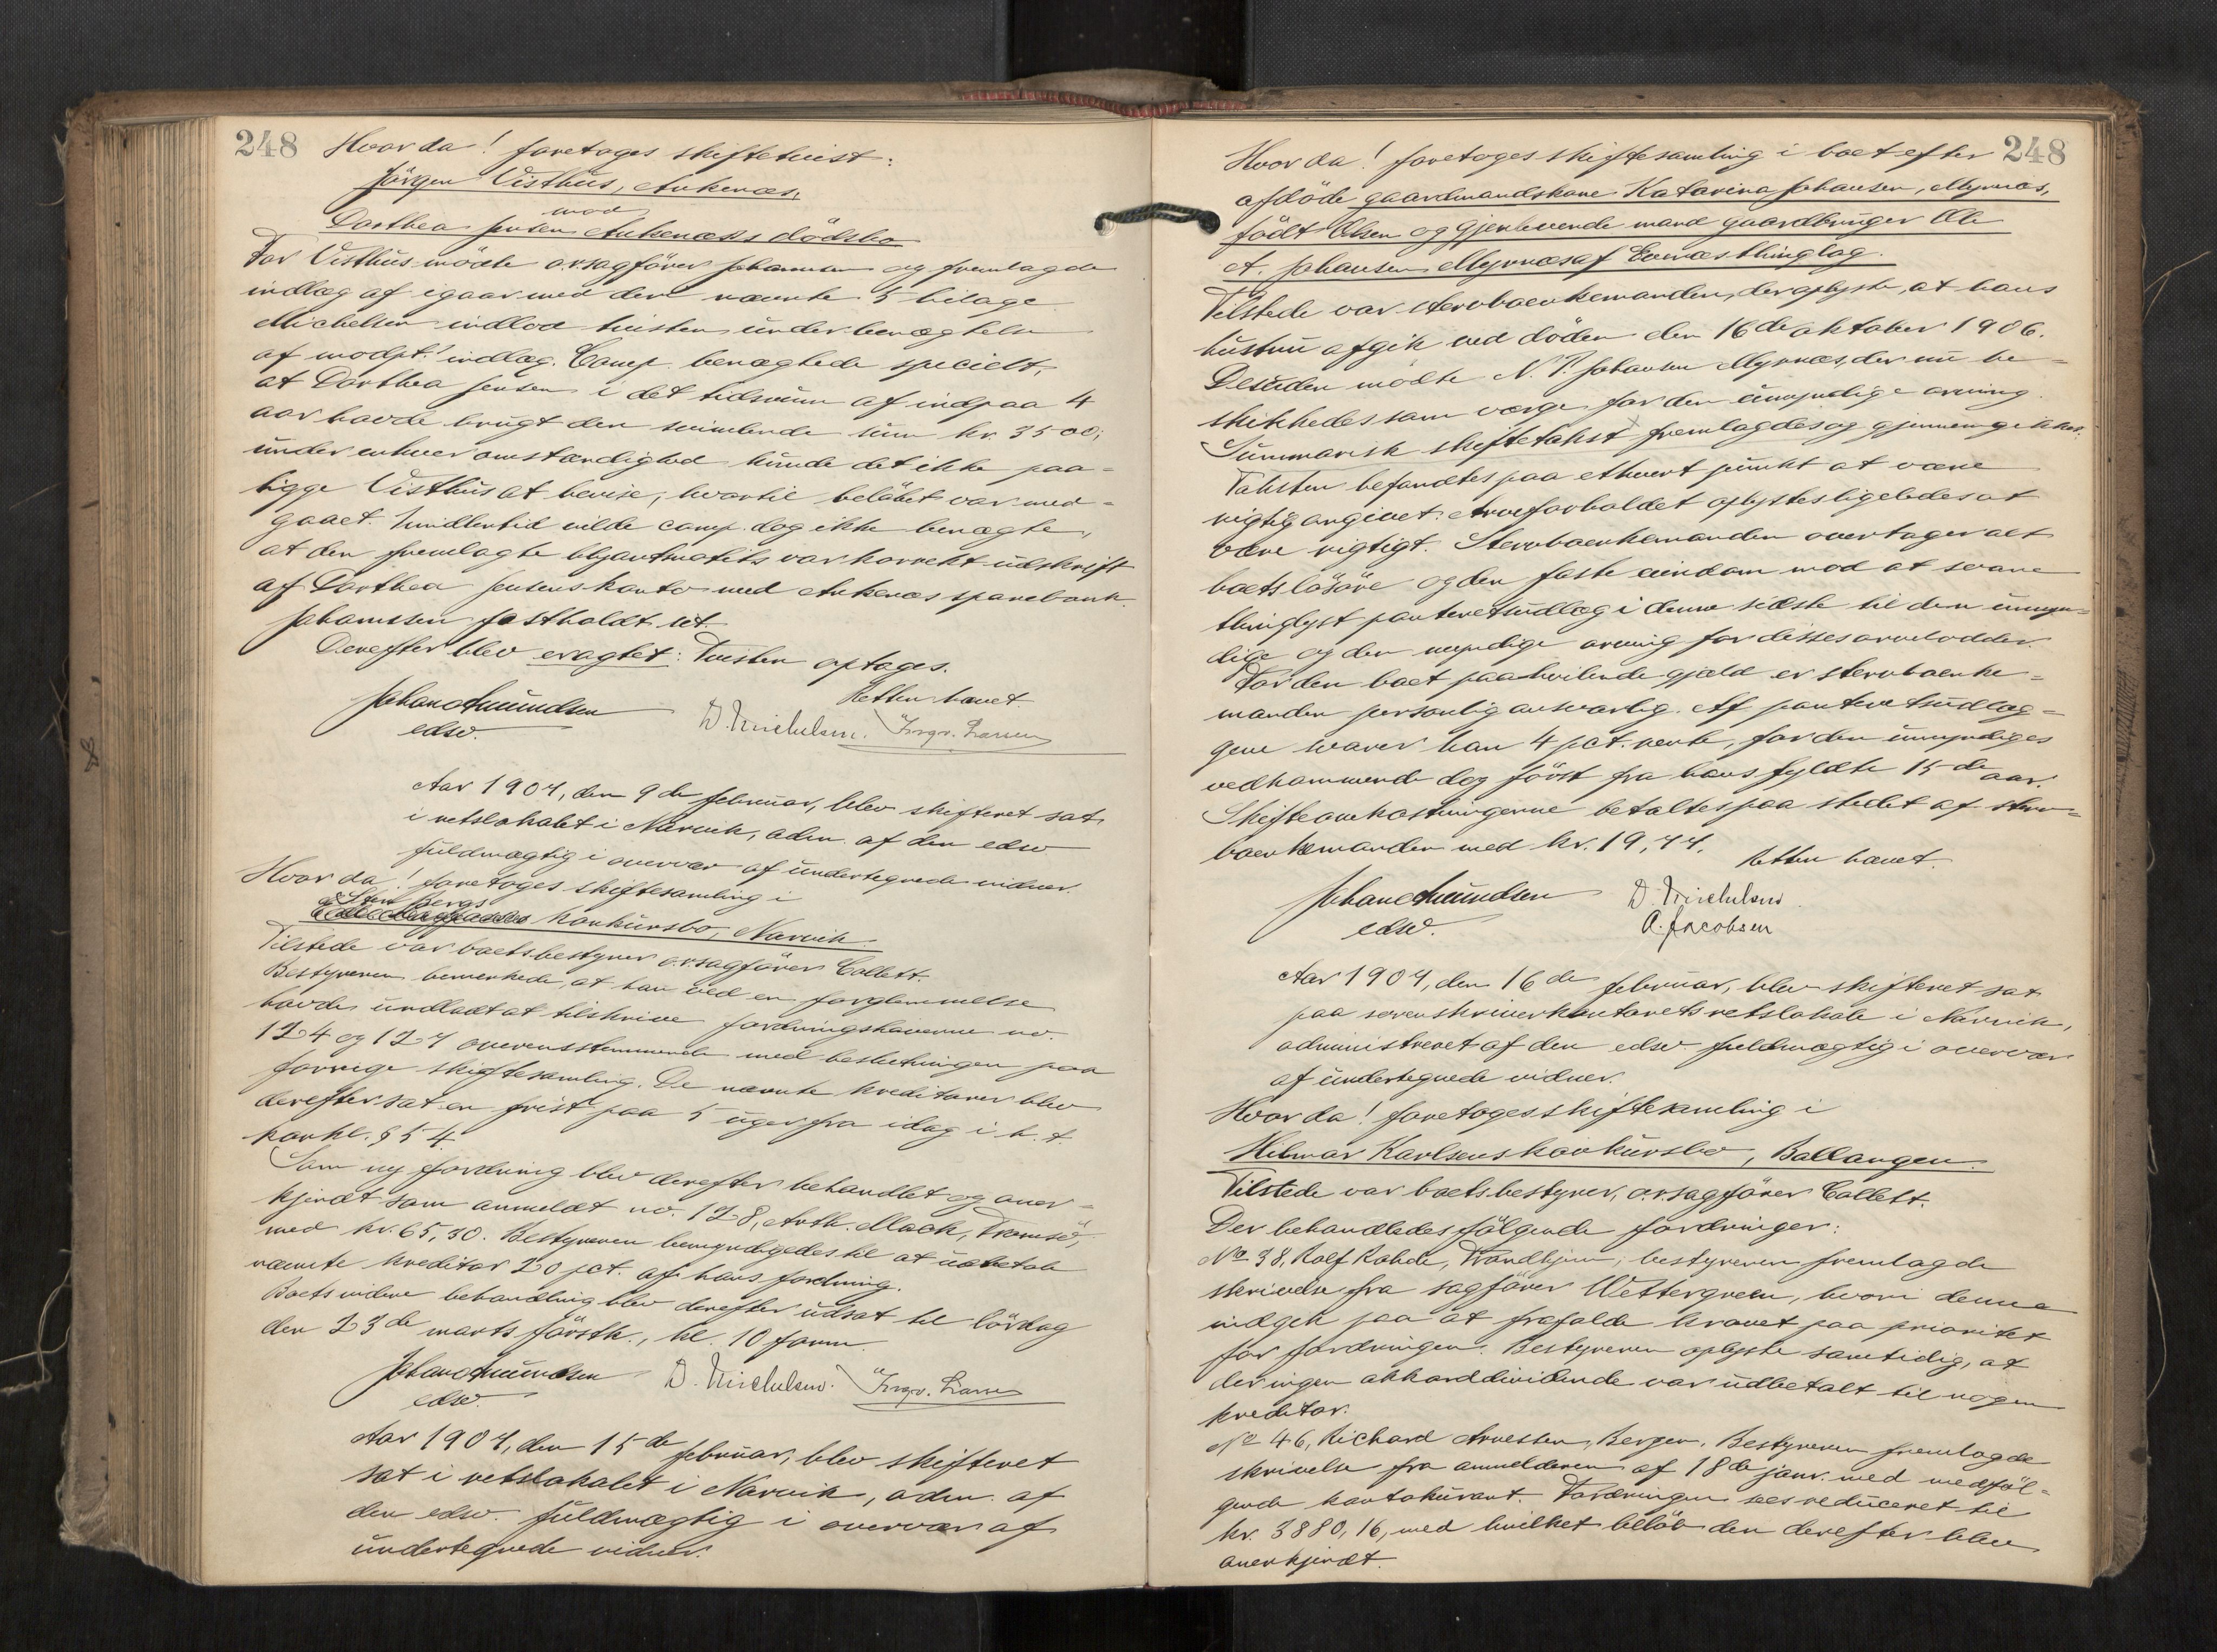 248
Hvorda! foretoges skiftetvist:
Jörgen Visthus, Ankenæs,
mod
Dorthea Jensen Ankenæs's dödsbo
For Visthus mödte o.r.sagförer Johannssen og fremlagde
indlæg af igaar med deri nævnte 5 bilage
Michelsen indlod tvisten under benægtelse
af modpt.s indlæg. Comp. benægtede specielt,
at Dorthea Jensen i det tidsrum af indpaa 4
aar havde brugt den svimlende sum kr. 3500;
under enhver omstændighed kunde det ikke paa-
ligge Visthus at bevise, hvortil belöbet var med-
gaaet. Imidlertid vilde comp. dog ikke benægte,
at den fremlagte var korrekt udskrift
af Dorthea Jensens konto med Ankenæs sparebank.
Johannssen fastholdt sit.
Derefter blev eragtet: Tvisten optages.
Retten hævet
Johan Amundsen D. Michelsen. Ingv. Larsen
edsv.
Aar 1907, den 9de februar, blev skifteret sat
i retslokalet i Narvik, adm. af den edsv
fuldmægtig i overvær af undertegnede vidner.
Hvorda! foretoges skiftesamling i
Sten Bergs
konkursbo, Narvik.
Tilstede var boets bestyrer o.r.sagförer Collett.
Bestyreren bemerkede, at han ved en forglemmelse
havde undladt at tilskrive fordringshaverne no.
124 og 127 overensstemmende med beslutningen paa
forrige skiftesamling. De nævnte kreditorer blev
derefter sat en frist paa 5 uger fra idag i h. t.
konkl. § 54.
Som ny fordring blev derefter behandlet og aner-
kjendt som anmeldt no. 128, Arth. Mack, Tromsö,
med kr. 65,30. Bestyreren bemyndigedes til at udbetale
nævnte kreditor 20 pct. af hans fordring.
Boets videre behandling blev derefter udsat til lördag
den 23de marts förstk., kl. 10 form.
Johan Amundsen D. Michelsen. Ingv. Larsen
edsv.
Aar 1907, den 15de februar, blev skifteret
sat i retslokalet i Narvik, adm. af
den edsv. fuldmægtig i overvær af
undertegnede vidner.
248
Hvorda! foretoges skiftesamling i boet efter
afdöde gaardmandskone Katarina Johansen, Myrnæs,
födt Olsen og gjenlevende mand gaardbruger Ole
A. Johansen Myrnæs af Evenæs thinglag.
Tilstede var stervboenkemanden, der oplyste, at hans
hustru afgik ved döden den 16de oktober 1906.
Desuden mödte N. P. Johansen Myrnæs, der nu be-
skikkedes som værge for den umyndige arving.
Summarisk skiftetakst fremlagdes og gjennemgikkes.
Taksten befandtes paa ethvert punkt at være
rigtig angivet. Arveforholdet oplystes ligeledes at
være rigtigt. Stervboenkemanden overtager alt
boets lösöre og den faste eiendom mod at svare
thinglyst panteretsudlæg i denne sidste til den umyn-
dige og den myndige arving for disses arvelodder.
For den boet paahvilende gjæld er stervboenke-
manden personlig ansvarlig. Af panteretsudlæg-
gene svarer han 4 pct. rente, for den umyndiges
vedkommende dog först fra hans fyldte 15de aar.
Skifteomkostningerne betaltes paa stedet af sterv-
boenkemanden med kr. 19,44.
Retten hævet.
Johan Amundsen D. Michelsen
edsv. A. Jacobsen
Aar 1907, den 16de februar, blev skifteret sat
paa sorenskriverkontorets retslokale i Narvik,
administreret af den edsv fuldmægtig i overvær
af undertegnede vidner.
Hvorda! foretoges skiftesamling i
Hilmar Karlsens konkursbo, Ballangen.
Tilstede var boets bestyrer, o.r.sagförer Collett.
Der behandledes fölgende fordringer:
No 38, Rolf Rohde, Trondhjem; bestyreren fremlagde
skrivelse fra sagförer Wettergreen, hvori denne
indgik paa at frafalde kravet paa prioritet
for fordringen. Bestyreren oplyste samtidig, at
der ingen akkorddividende var udbetalt til nogen
kreditor.
No 46, Richard Arnesen, Bergen. Bestyreren fremlagde
skrivelse fra anmelderen af 18de janr. med medföl-
gende kontokurant. Fordringen sees reduceret til
kr. 3880,16, med hvilket belöb den derefter blev
anerkjendt.